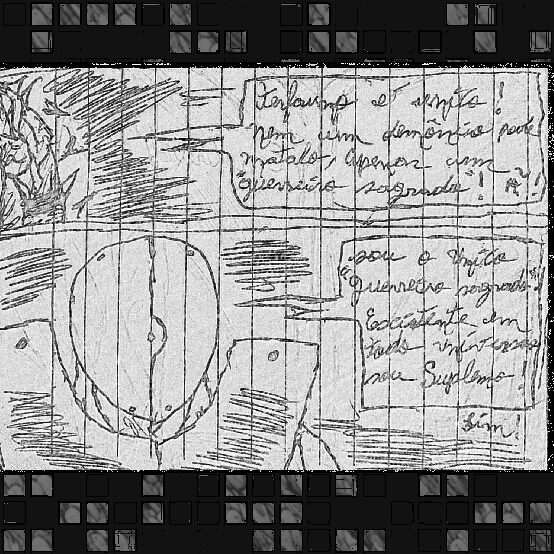 é muito!
nem um demônio pode
matalo, apenas um
"guerreiro sagrado"!
sou o único
"guerreiro sagrado"
Existente em
todo universo
sou Suplemo!
Sim!